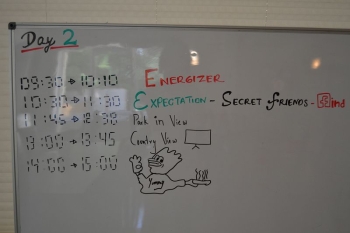 Day 2
09:30 → 10:10 ENERGIZER
10:30 → 11:30 EXPECTATION - SECRET FRIENDS -
11:45 → 12:30 Park in View
13:00 → 13:45 Country View
14:00 → 15:00
Yummy